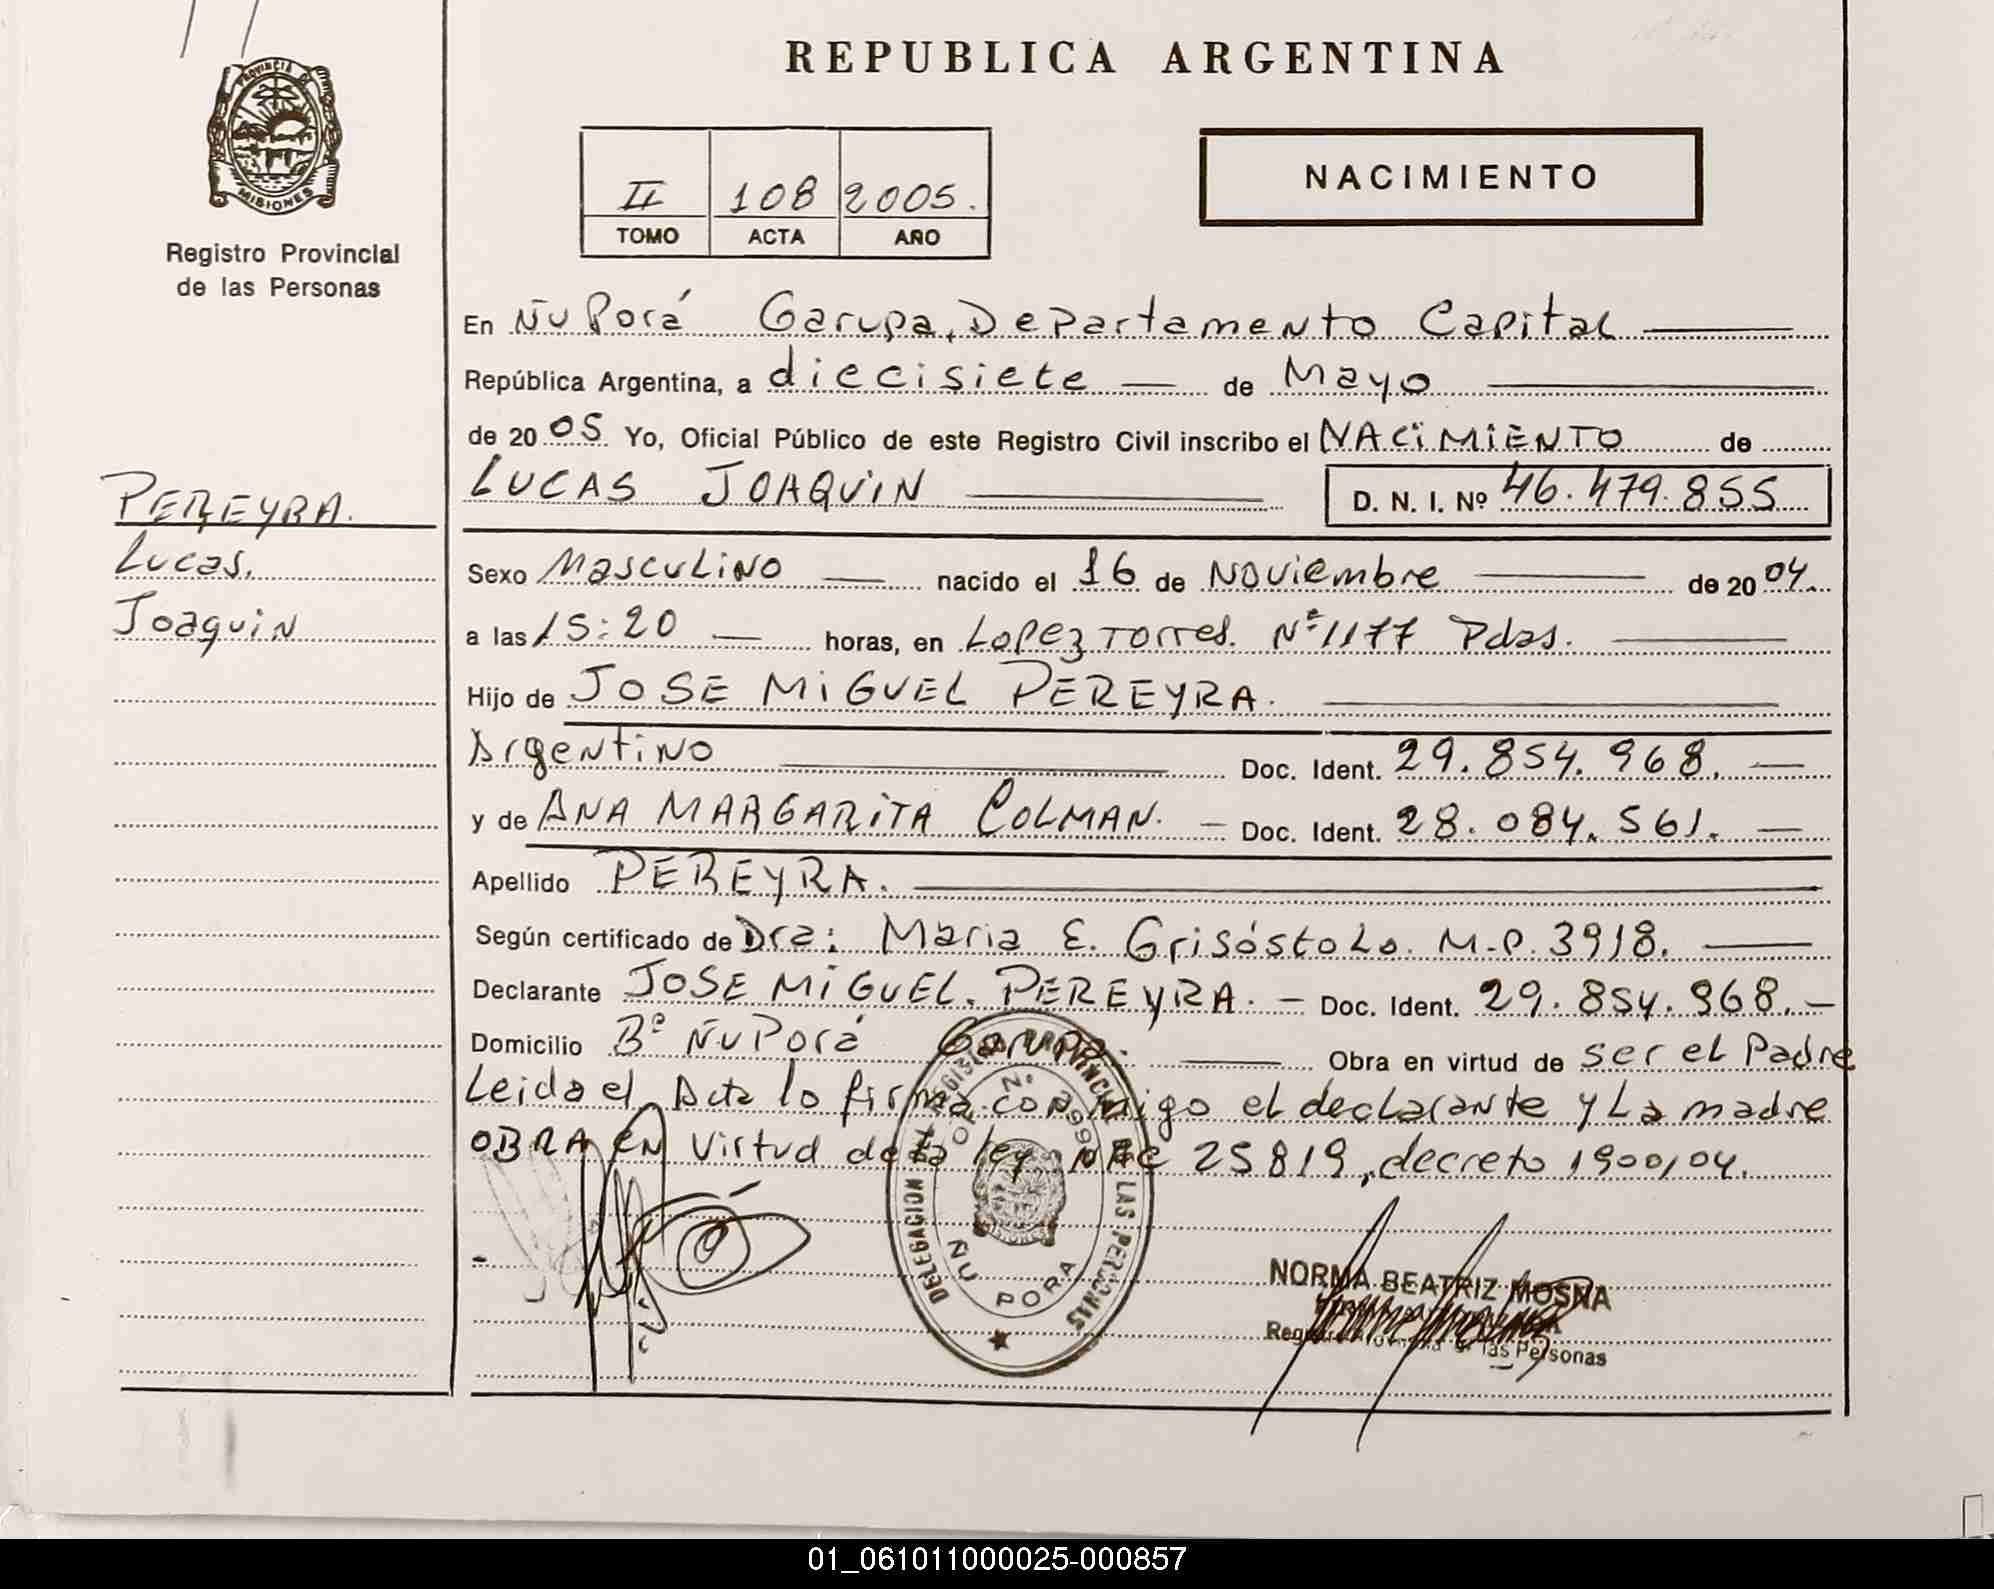 REPUBLICA ARGENTINA
PROVINCIA DE
MISIONES
Registro Provincial
de las Personas
II 108 2005.
TOMO ACTA AÑO
NACIMIENTO
En Ñu Porá Garupa, Departamento Capital
República Argentina, a diecisiete de Mayo
de 20 05 Yo, Oficial Público de este Registro Civil inscribo el NACIMIENTO de
LUCAS JOAQUIN D. N. I. Nº 46.479.855
PEREYRA.
Lucas.
Joaquin
Sexo Masculino nacido el 16 de Noviembre de 20 04.
a las 15:20 horas, en Lopez Torres. Nº 1177 Pdas.
Hijo de JOSE MIGUEL PEREYRA.
Argentino Doc. Ident. 29.854.968.
y de ANA MARGARITA COLMAN. Doc. Ident. 28.084.561.
Apellido PEREYRA.
Según certificado de Dra: Maria E. Grisóstolo. M.P. 3918.
Declarante JOSE MIGUEL. PEREYRA. Doc. Ident. 29.854.968.
Domicilio Bº Ñu Porá Garupa. Obra en virtud de ser el Padre
Leida el Acta lo firma conmigo el declarante y La madre
OBRA EN Virtud de la ley 25819, decreto 1900/04.
DELEGACION REGISTRO PROVINCIAL DE LAS PERSONAS
ÑU PORA
NORMA BEATRIZ MOSNA
las Personas
01_061011000025-000857